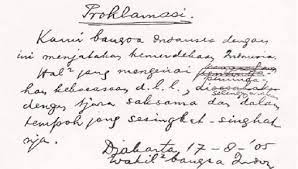 Proklamasi
Kami bangsa Indonesia dengan
ini menjatakan kemerdekaan Indonesia.
Hal² jang mengenai
kekoeasaan d.l.l.,
dengan tjara saksama dan dalam
tempoh jang sesingkat-singkat-
nja.
Djakarta 17-8-'05
Wakil² bangsa